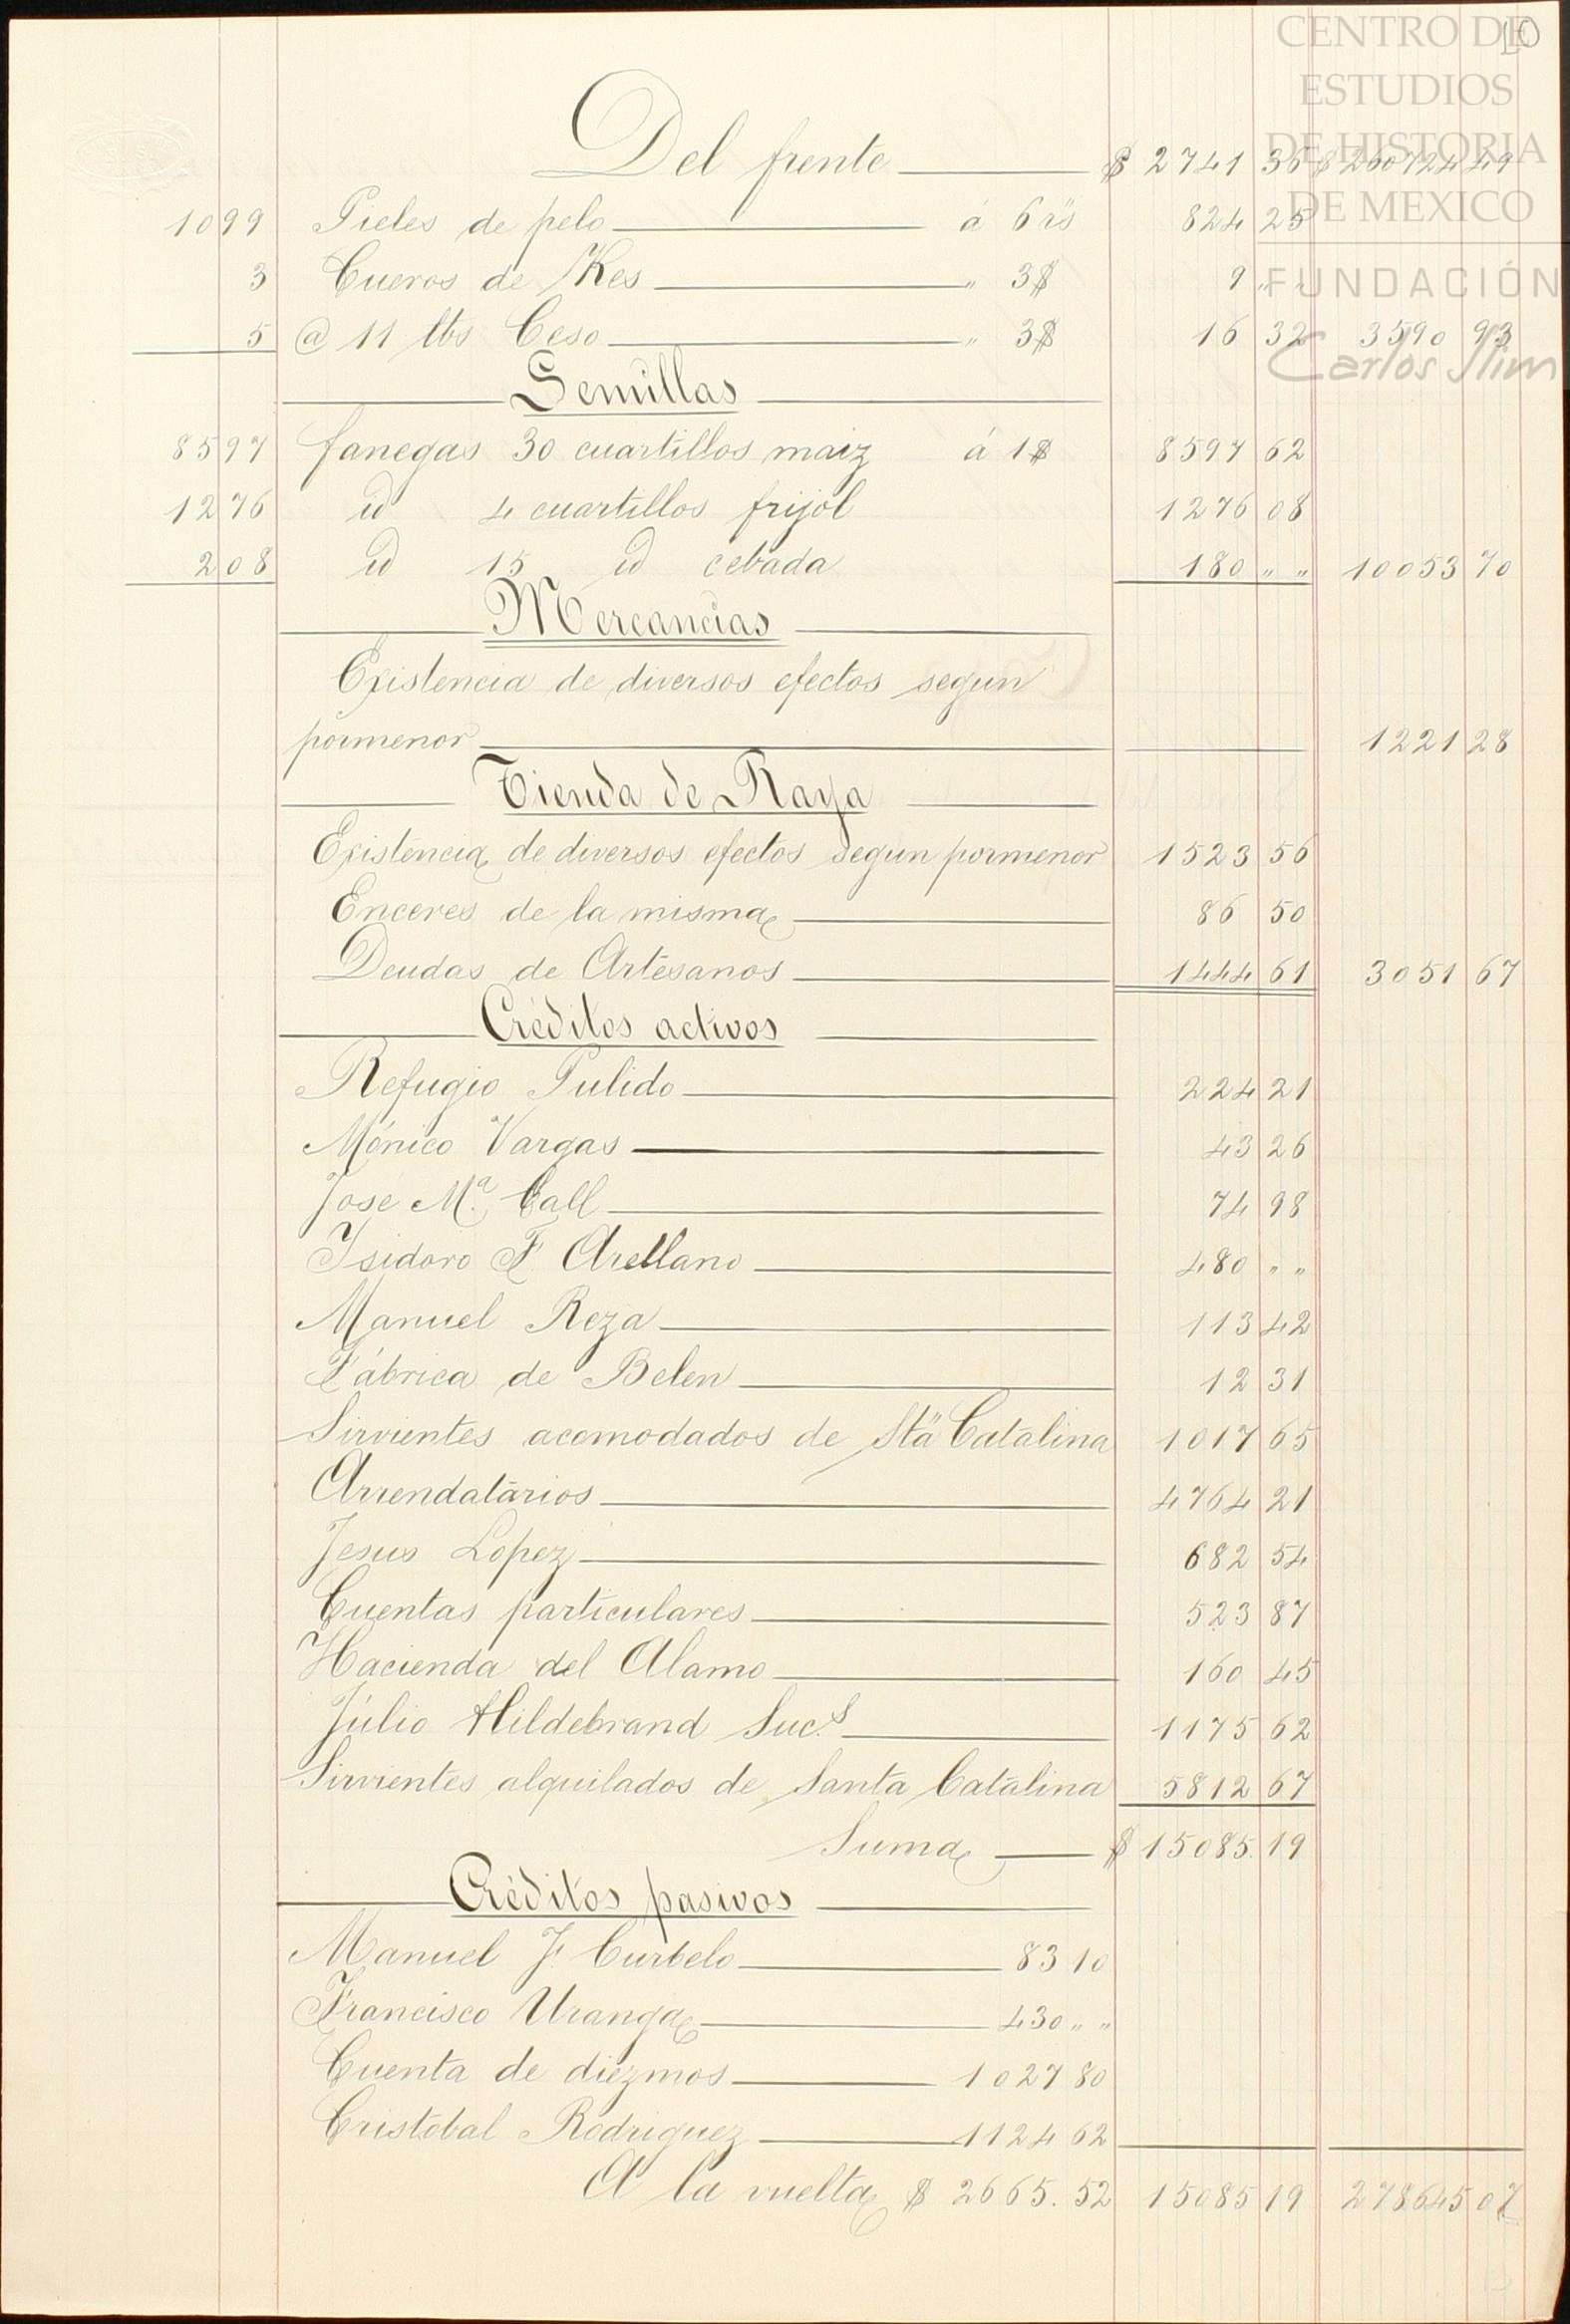 CENTRO DE
ESTUDIOS
DE HISTORIA
DE MEXICO
FUNDACIÓN
Carlos Slim
Del frente $ 2741 36 $ 260724 49
1099 Pieles de pelo á 6 rs 824 25
3 Cueros de Res " 3$ 9 " "
5 @ 11 lbs Ceso " 3$ 16 32 3590 93
Semillas
8597 fanegas 30 cuartillos maiz á 1$ 8597 62
1276 id 4 cuartillos frijol 1276 08
208 id 15 id cebada 180 " " 10053 70
Mercancias
Existencia de diversos efectos segun
pormenor 1221 28
Tienda de Raya
Existencia de diversos efectos segun pormenor 1523 56
Enceres de la misma 86 50
Deudas de Artesanos 1444 61 3051 67
Créditos activos
Refugio Pulido 224 21
Mónico Vargas 43 26
José Ma. Call 74 98
Isidoro F. Arellano 480 " "
Manuel Reza 113 42
Fábrica de Belen 12 31
Sirvientes acomodados de Sta Catalina 1017 65
Arrendatarios 4764 21
Jesus Lopez 682 54
Cuentas particulares 523 87
Hacienda del Alamo 160 45
Júlio Hildebrand Suc.s 1175 62
Sirvientes alquilados de Santa Catalina 5812 67
Suma $ 15085.19
Créditos pasivos
Manuel F. Curbelo 83 10
Francisco Uranga 430 " "
Cuenta de diezmos 1027 80
Cristobal Rodriguez 1124 62
A la vuelta $ 2665.52 15085 19 278645 07